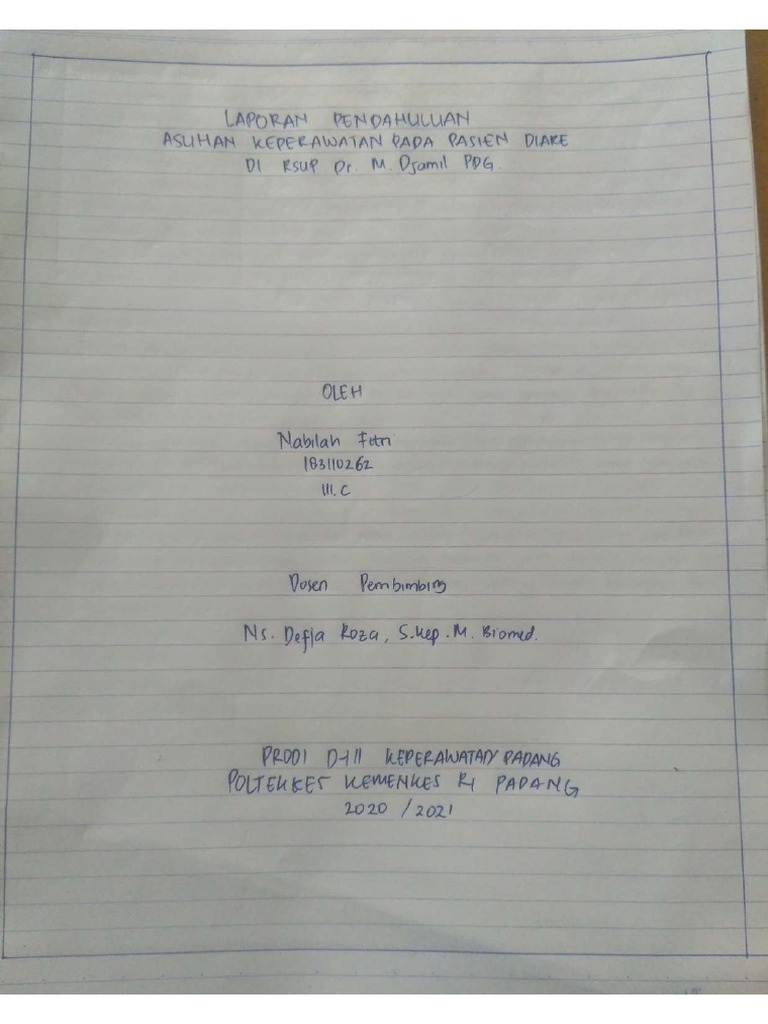 LAPORAN PENDAHULUAN
ASUHAN KEPERAWATAN PADA PASIEN DIARE
DI RSUP Dr. M. Djamil PDG.
OLEH
Nabilah Fitri
183110262
III.C
Dosen Pembimbing
Ns. Defia Roza, S.Kep. M. Biomed.
PRODI D-III KEPERAWATAN PADANG
POLTEKKES KEMENKES RI PADANG
2020 / 2021